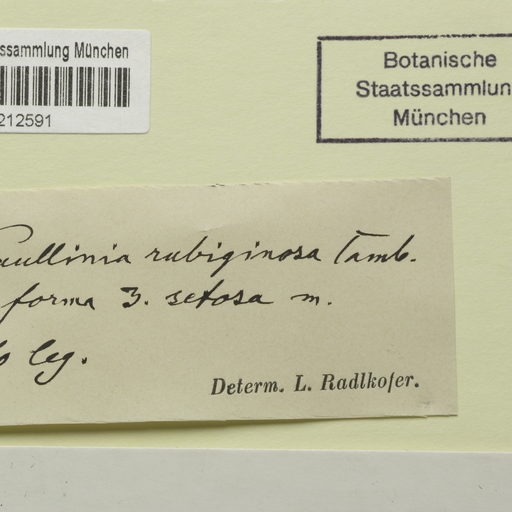 ssammlung München
212591
Botanische
Staatssammlun
München
aullinia rubiginosa Camb.
forma 3. setosa m.
leg.
Determ. L. Radlkofer.